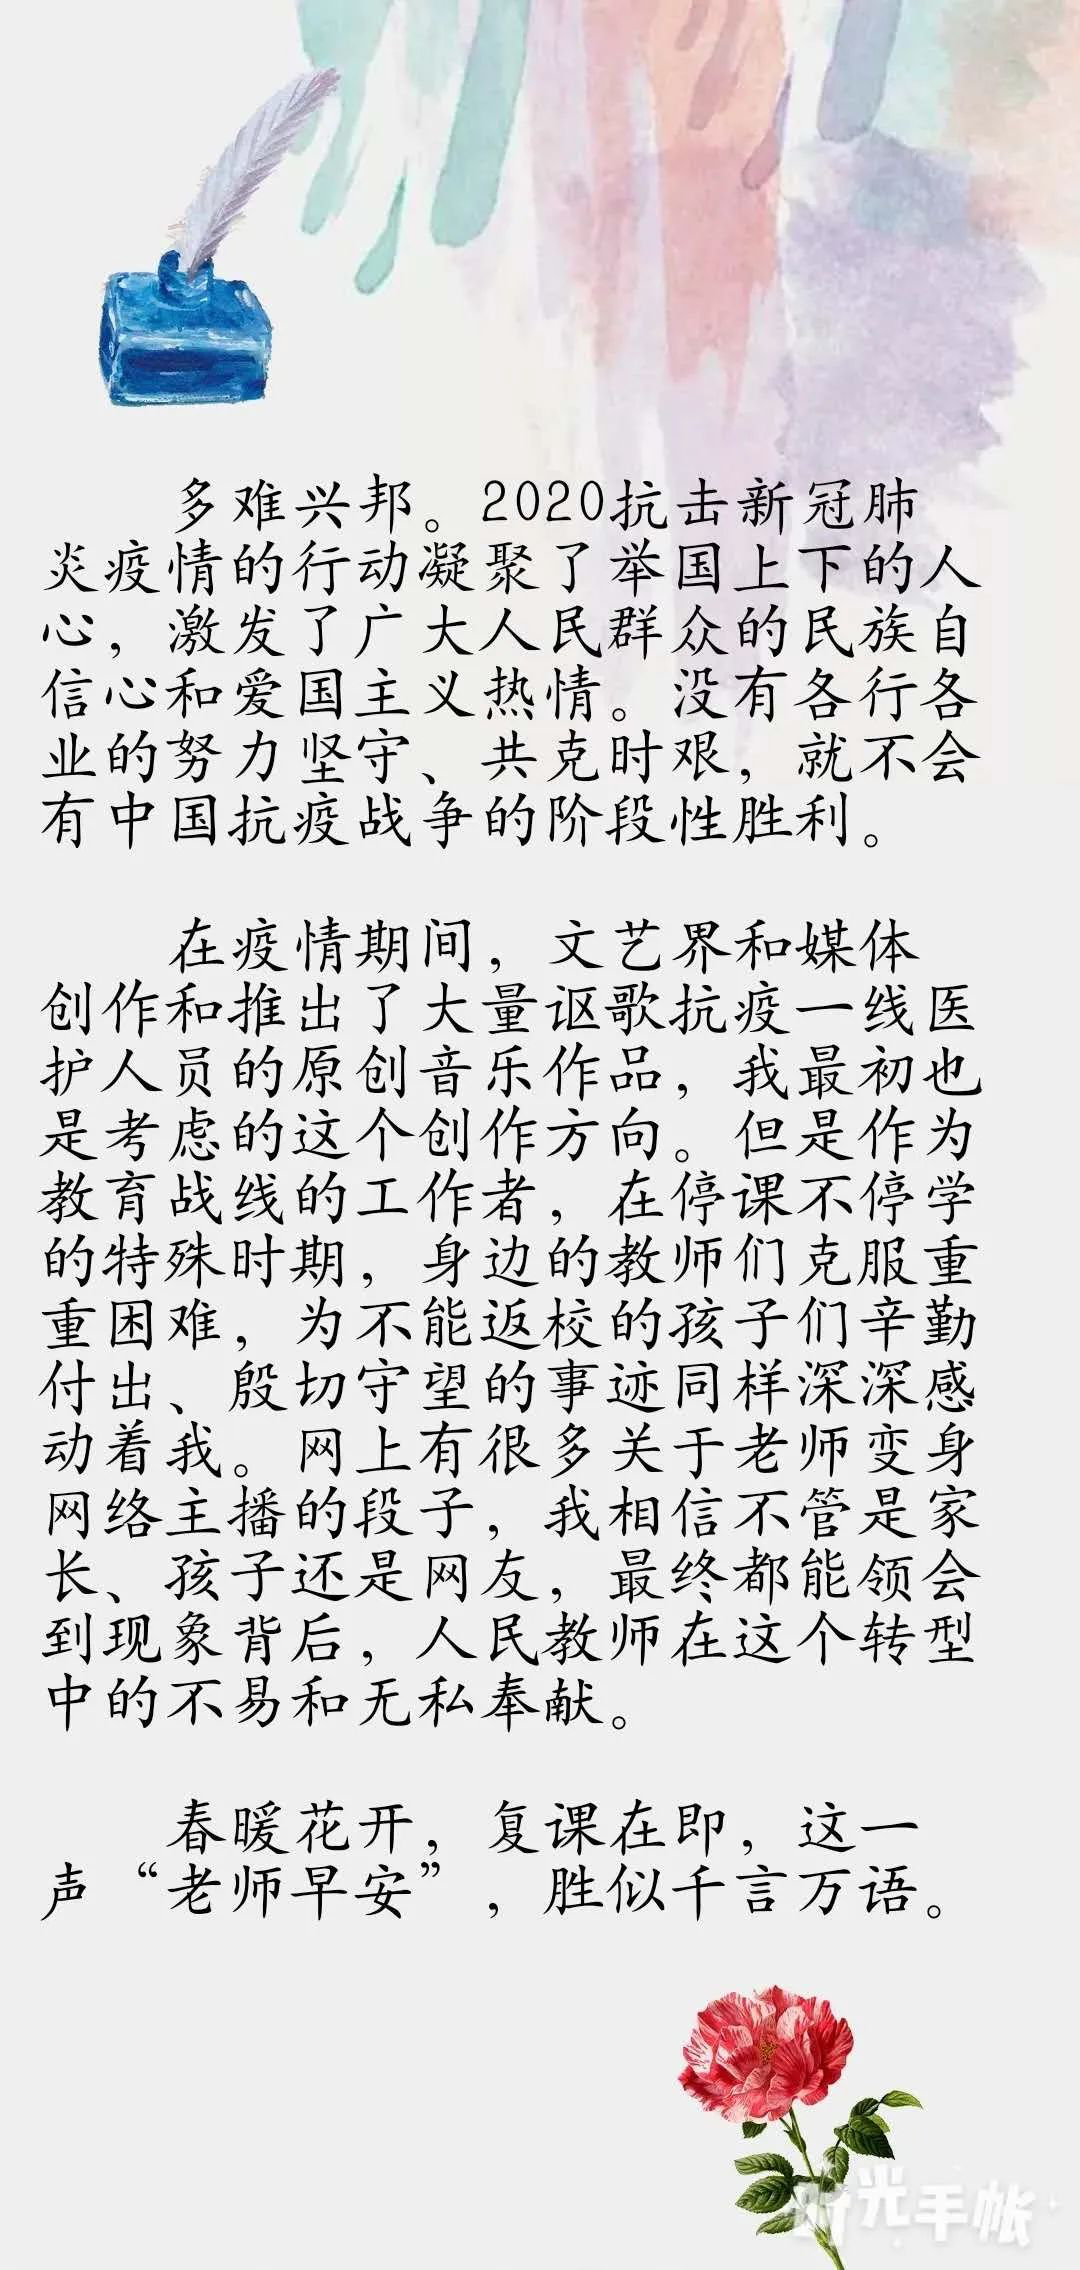 多难兴邦。2020抗击新冠肺
炎疫情的行动凝聚了举国上下的人
心，激发了广大人民群众的民族自
信心和爱国主义热情。没有各行各
业的努力坚守、共克时艰，就不会
有中国抗疫战争的阶段性胜利。
在疫情期间，文艺界和媒体
创作和推出了大量讴歌抗疫一线医
护人员的原创音乐作品，我最初也
是考虑的这个创作方向。但是作为
教育战线的工作者，在停课不停学
的特殊时期，身边的教师们克服重
重困难，为不能返校的孩子们辛勤
付出、殷切守望的事迹同样深深感
动着我。网上有很多关于老师变身
网络主播的段子，我相信不管是家
长、孩子还是网友，最终都能领会
到现象背后，人民教师在这个转型
中的不易和无私奉献。
春暖花开，复课在即，这一
声“老师早安”，胜似千言万语。
时光手帐